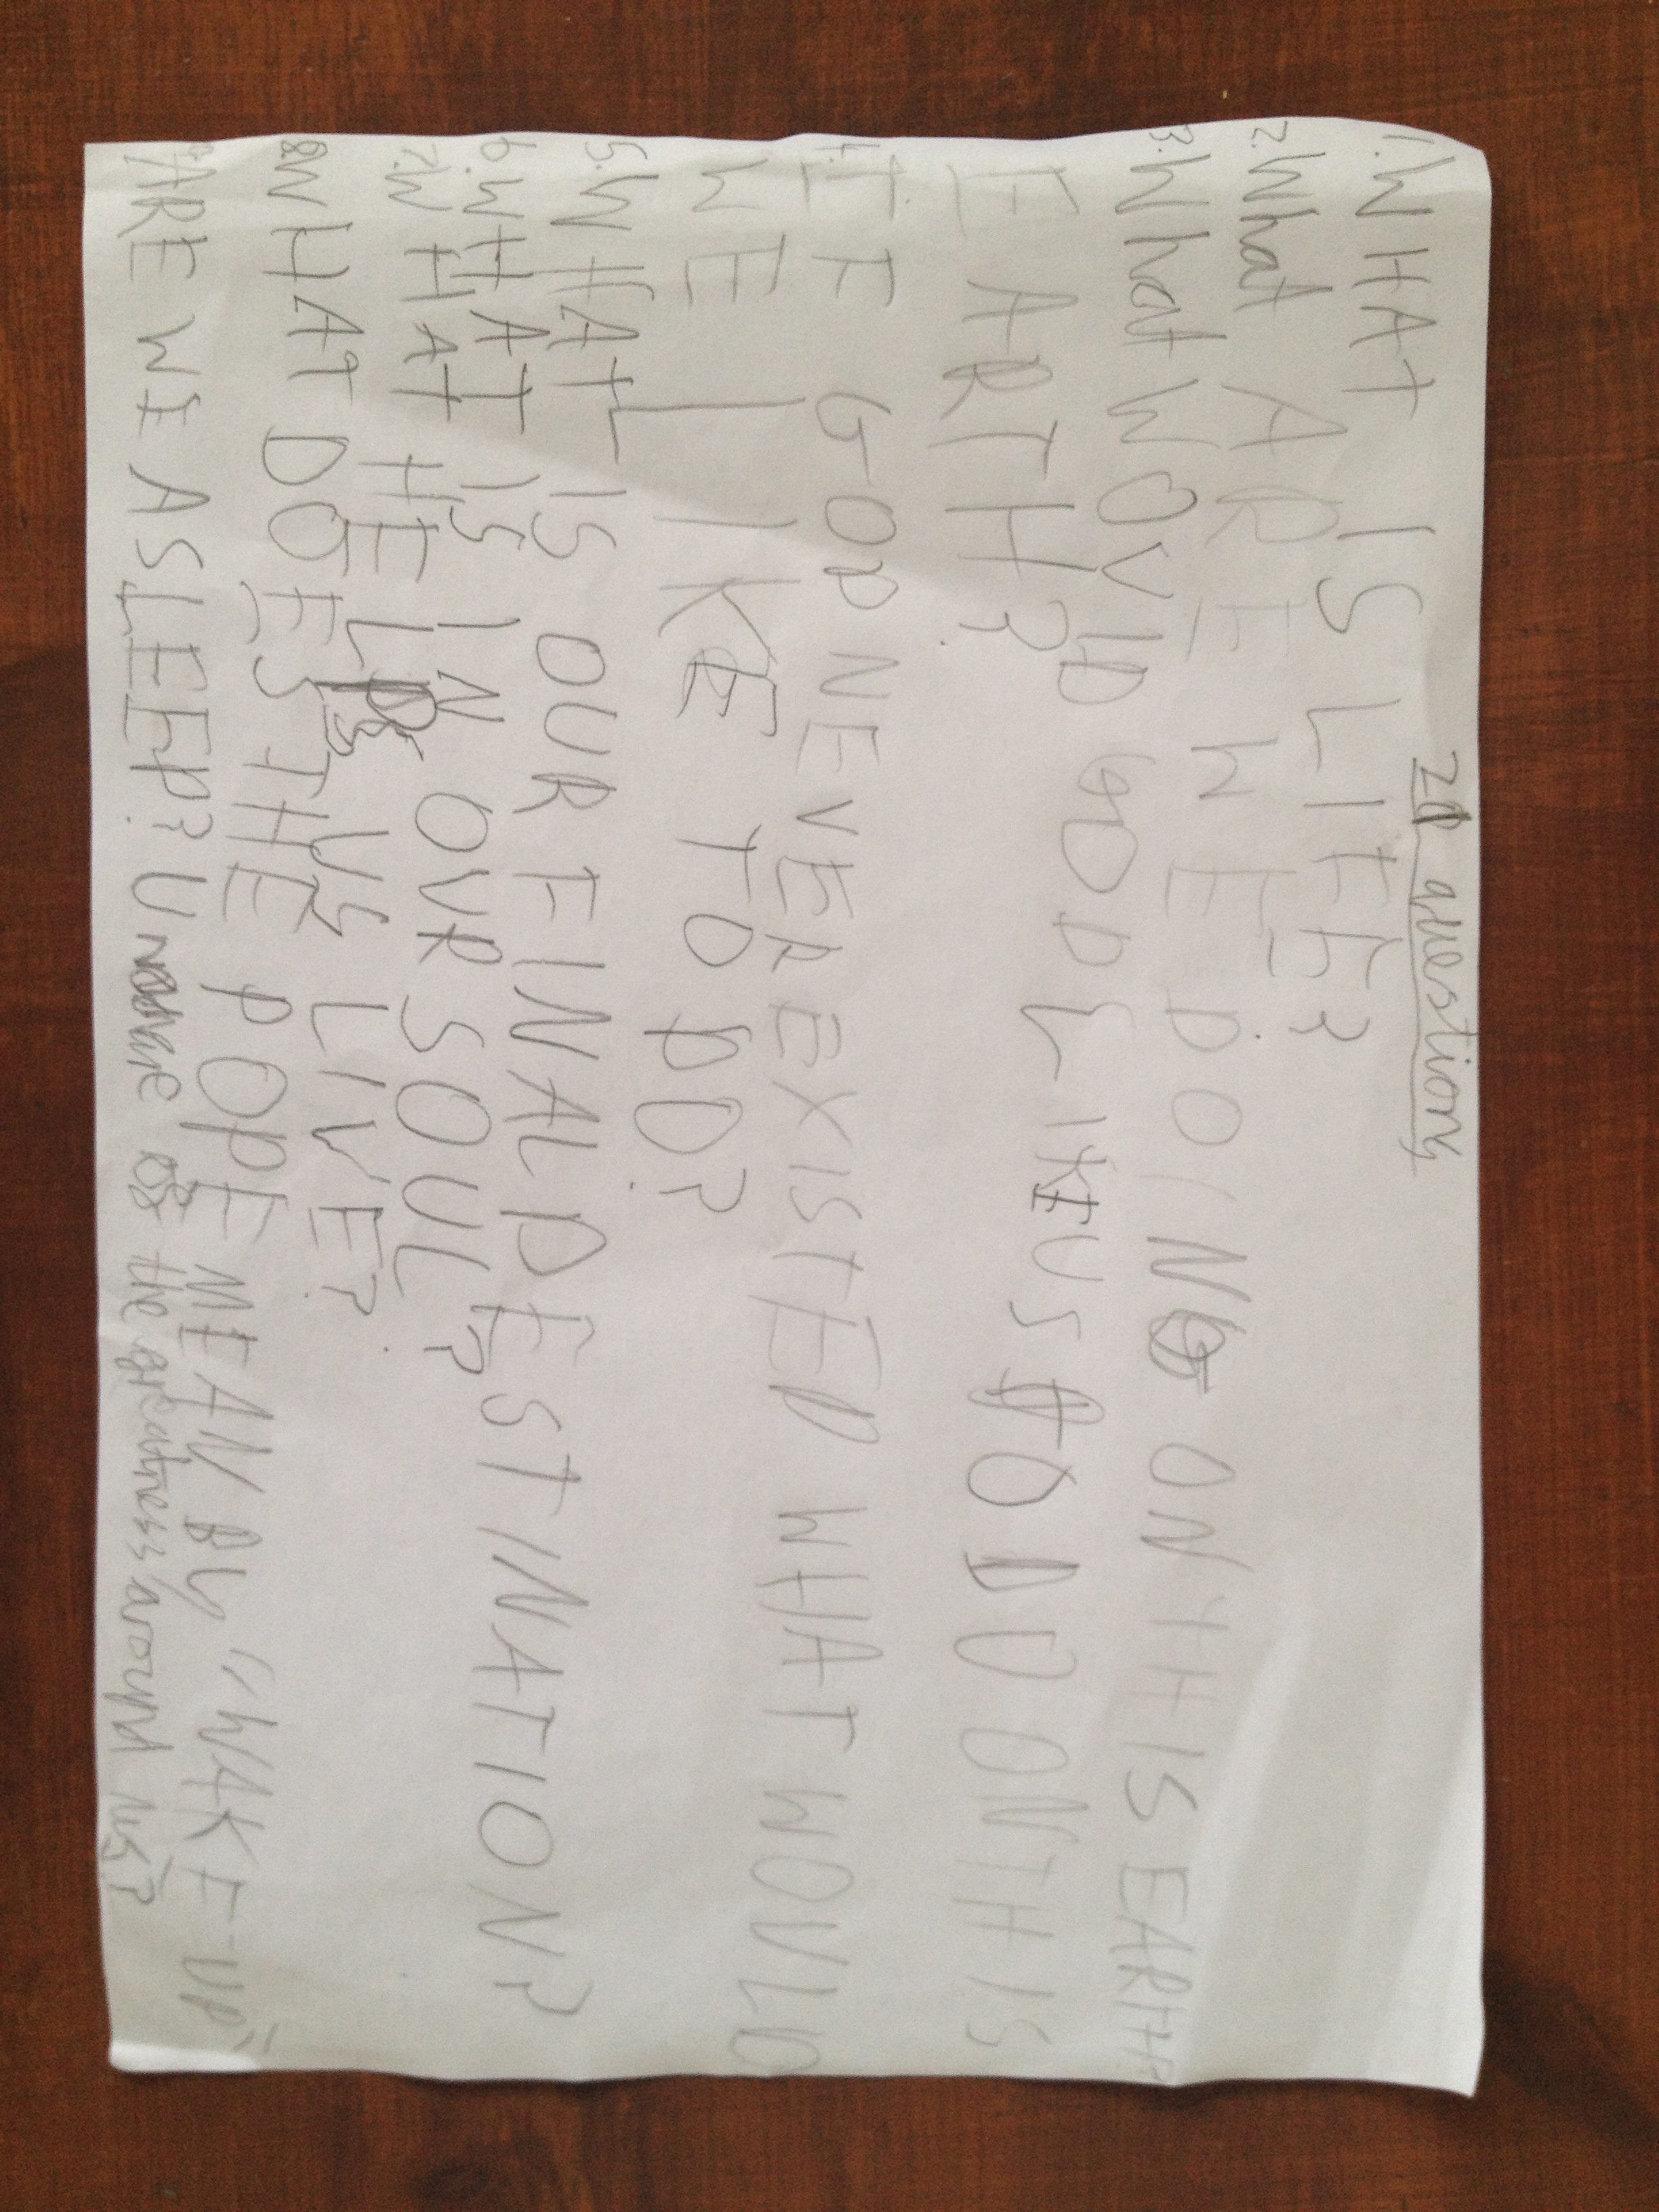 20 question
1. WHAT IS LIFE?
2. What ARE WE DOING ON THIS EARTH
3. What WOULD GOD LIKE US TO DO ON THIS
EARTH?
4. IF GOD NEVER EXISTED WHAT WOULD
WE LIKE TO DO?
5. WHAT IS OUR FINAL DESTINATION?
6. WHAT IS IN OUR SOUL?
7. WHAT HELPS US LIVE?
8. WHAT DOES THE POPE MEAN BY "WAKE-UP"
9. ARE WE ASLEEP? Unaware of the greatness around us?